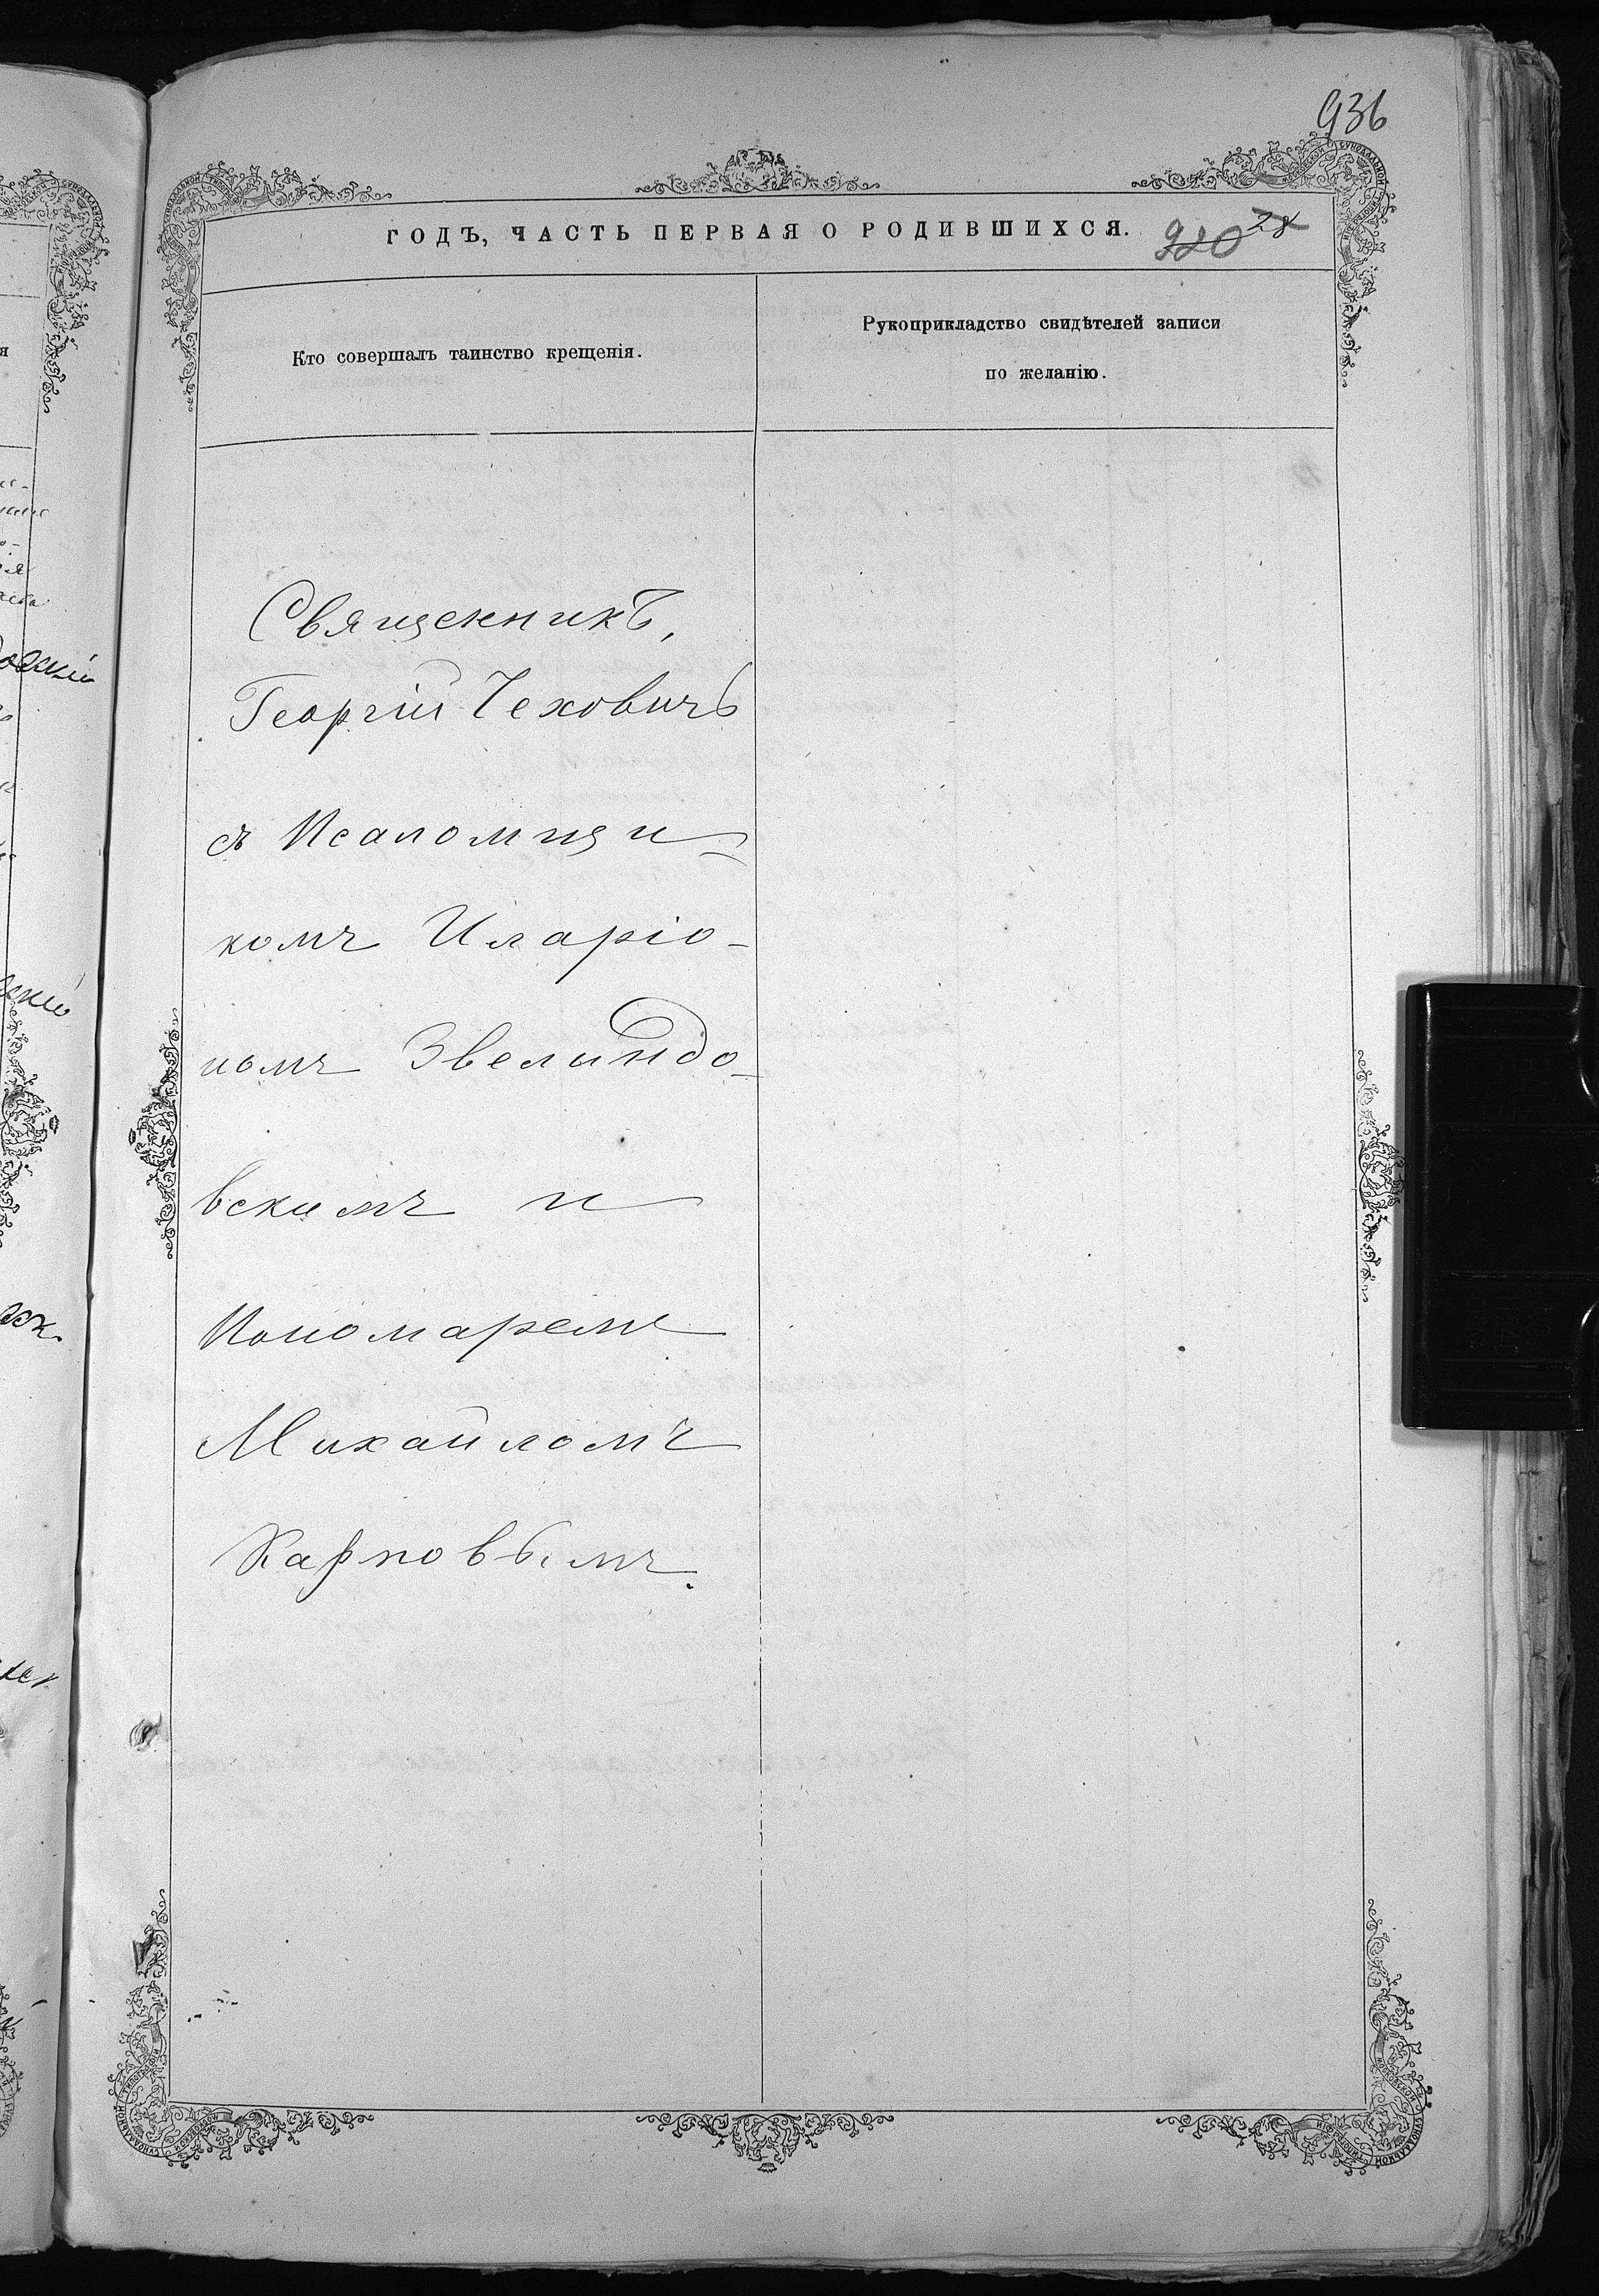 936
ГОДЪ, ЧАСТЬ ПЕРВАЯ О РОДИВШИХСЯ.
920 28
Кто совершалъ таинство крещенія.
Рукоприкладство свидѣтелей записи
по желанію.
Священникъ,
Георгій Чеховичъ
съ Псаломщи-
комъ Иларіо-
номъ Звелиндо-
вскимъ и
Пономаремъ
Михаиломъ
Карповымъ.